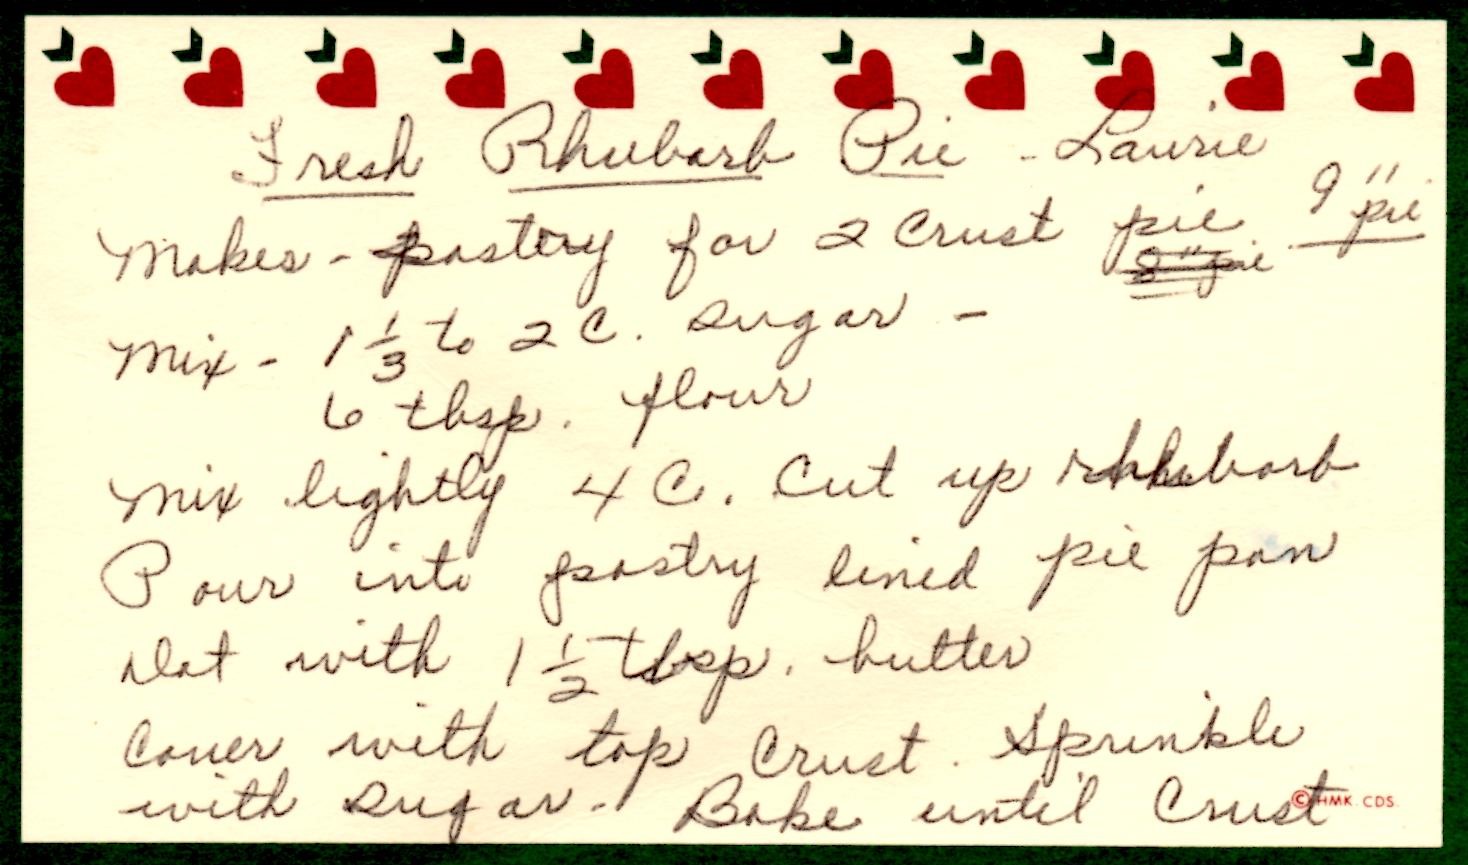 Fresh Rhubarb Pie - Laurie
Makes - pastery for 2 Crust pie 9" pie
8" pie
Mix - 1 1/3 to 2 C. sugar -
6 tbsp. flour
Mix lightly 4 C. Cut up rhubarb
Pour into pastry lined pie pan
Dot with 1 1/2 Tbsp. butter
Cover with top Crust. Sprinkle
with sugar. Bake until Crust
© HMK. CDS.